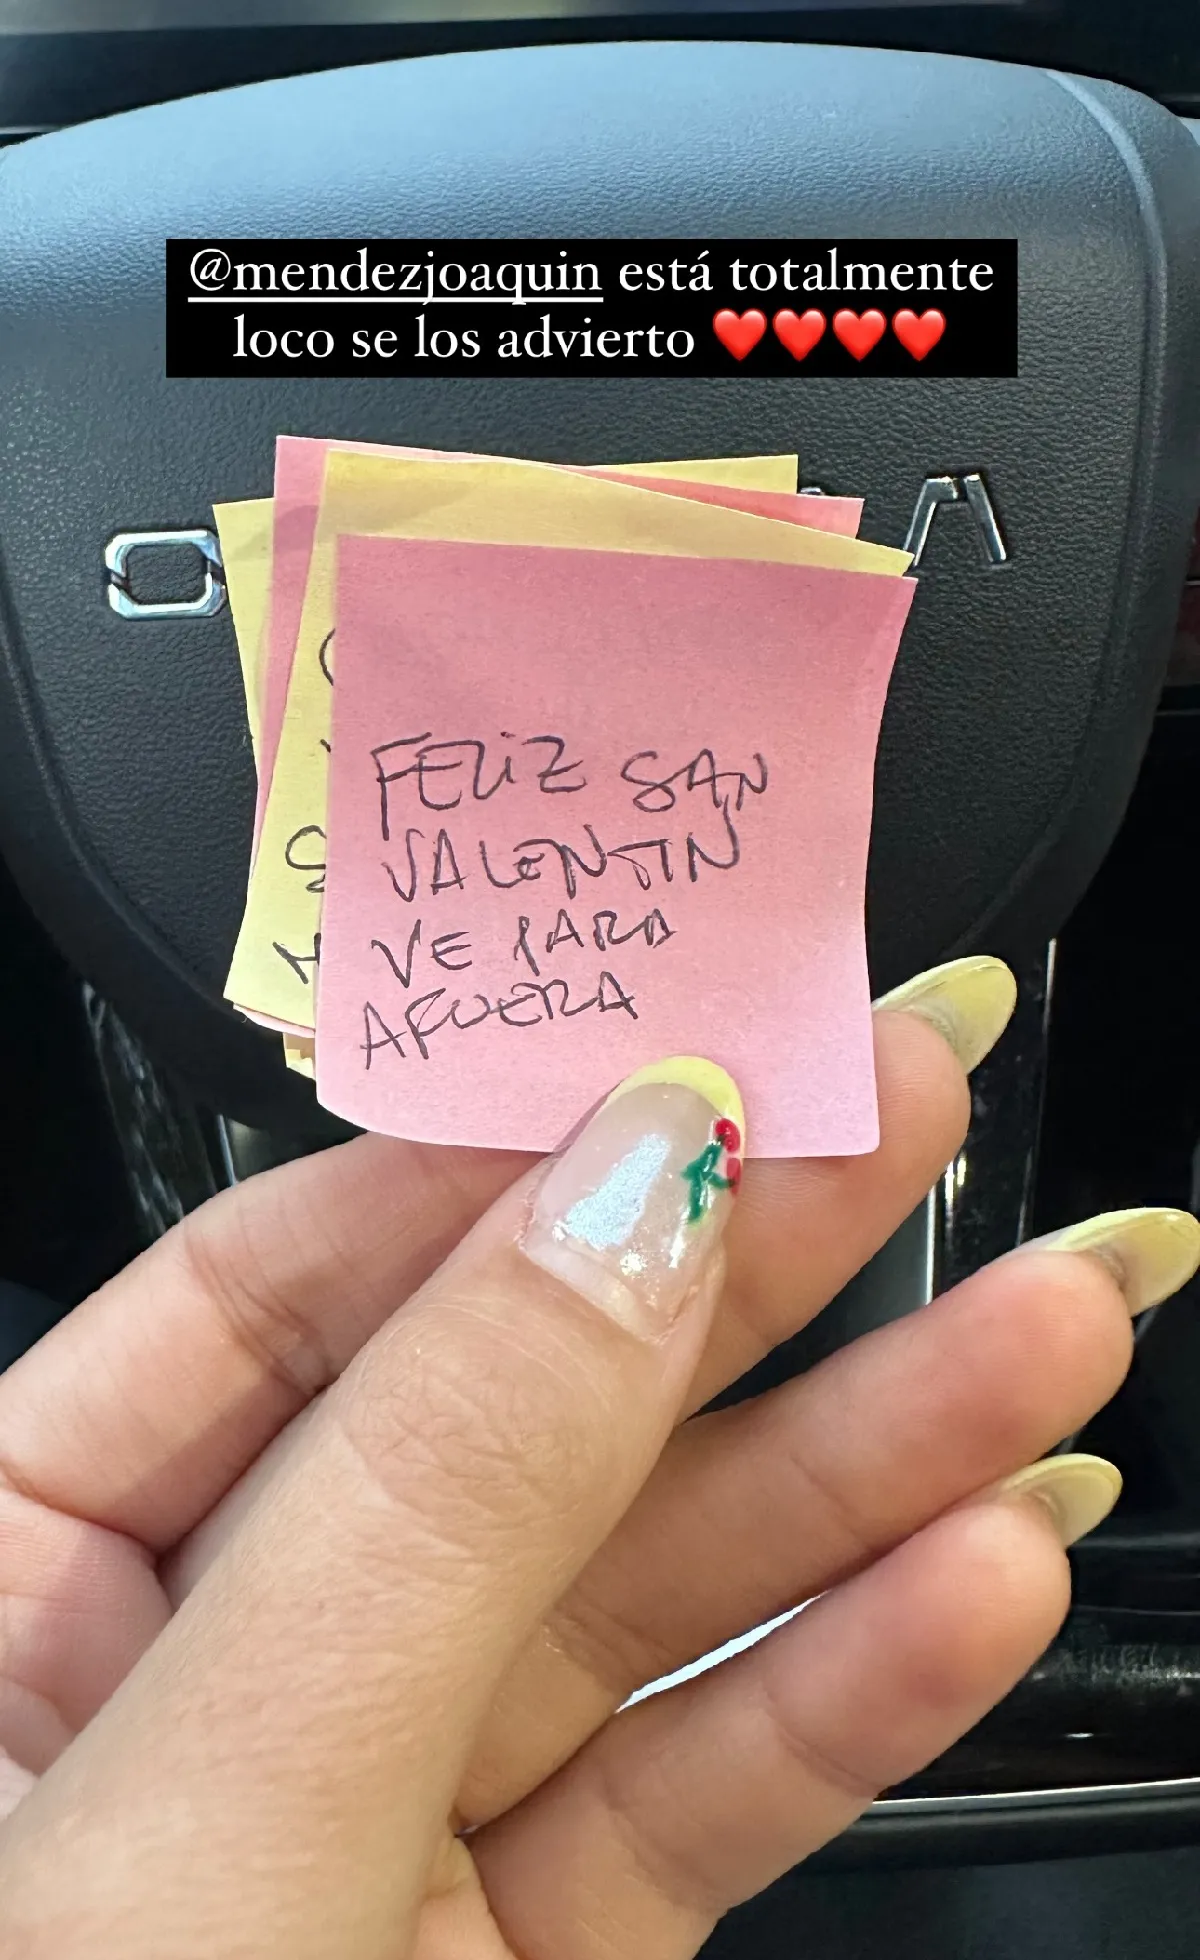 @mendezjoaquin está totalmente
loco se los advierto ❤️❤️❤️❤️
FELIZ SAN
VALENTIN
VE PARA
AFUERA